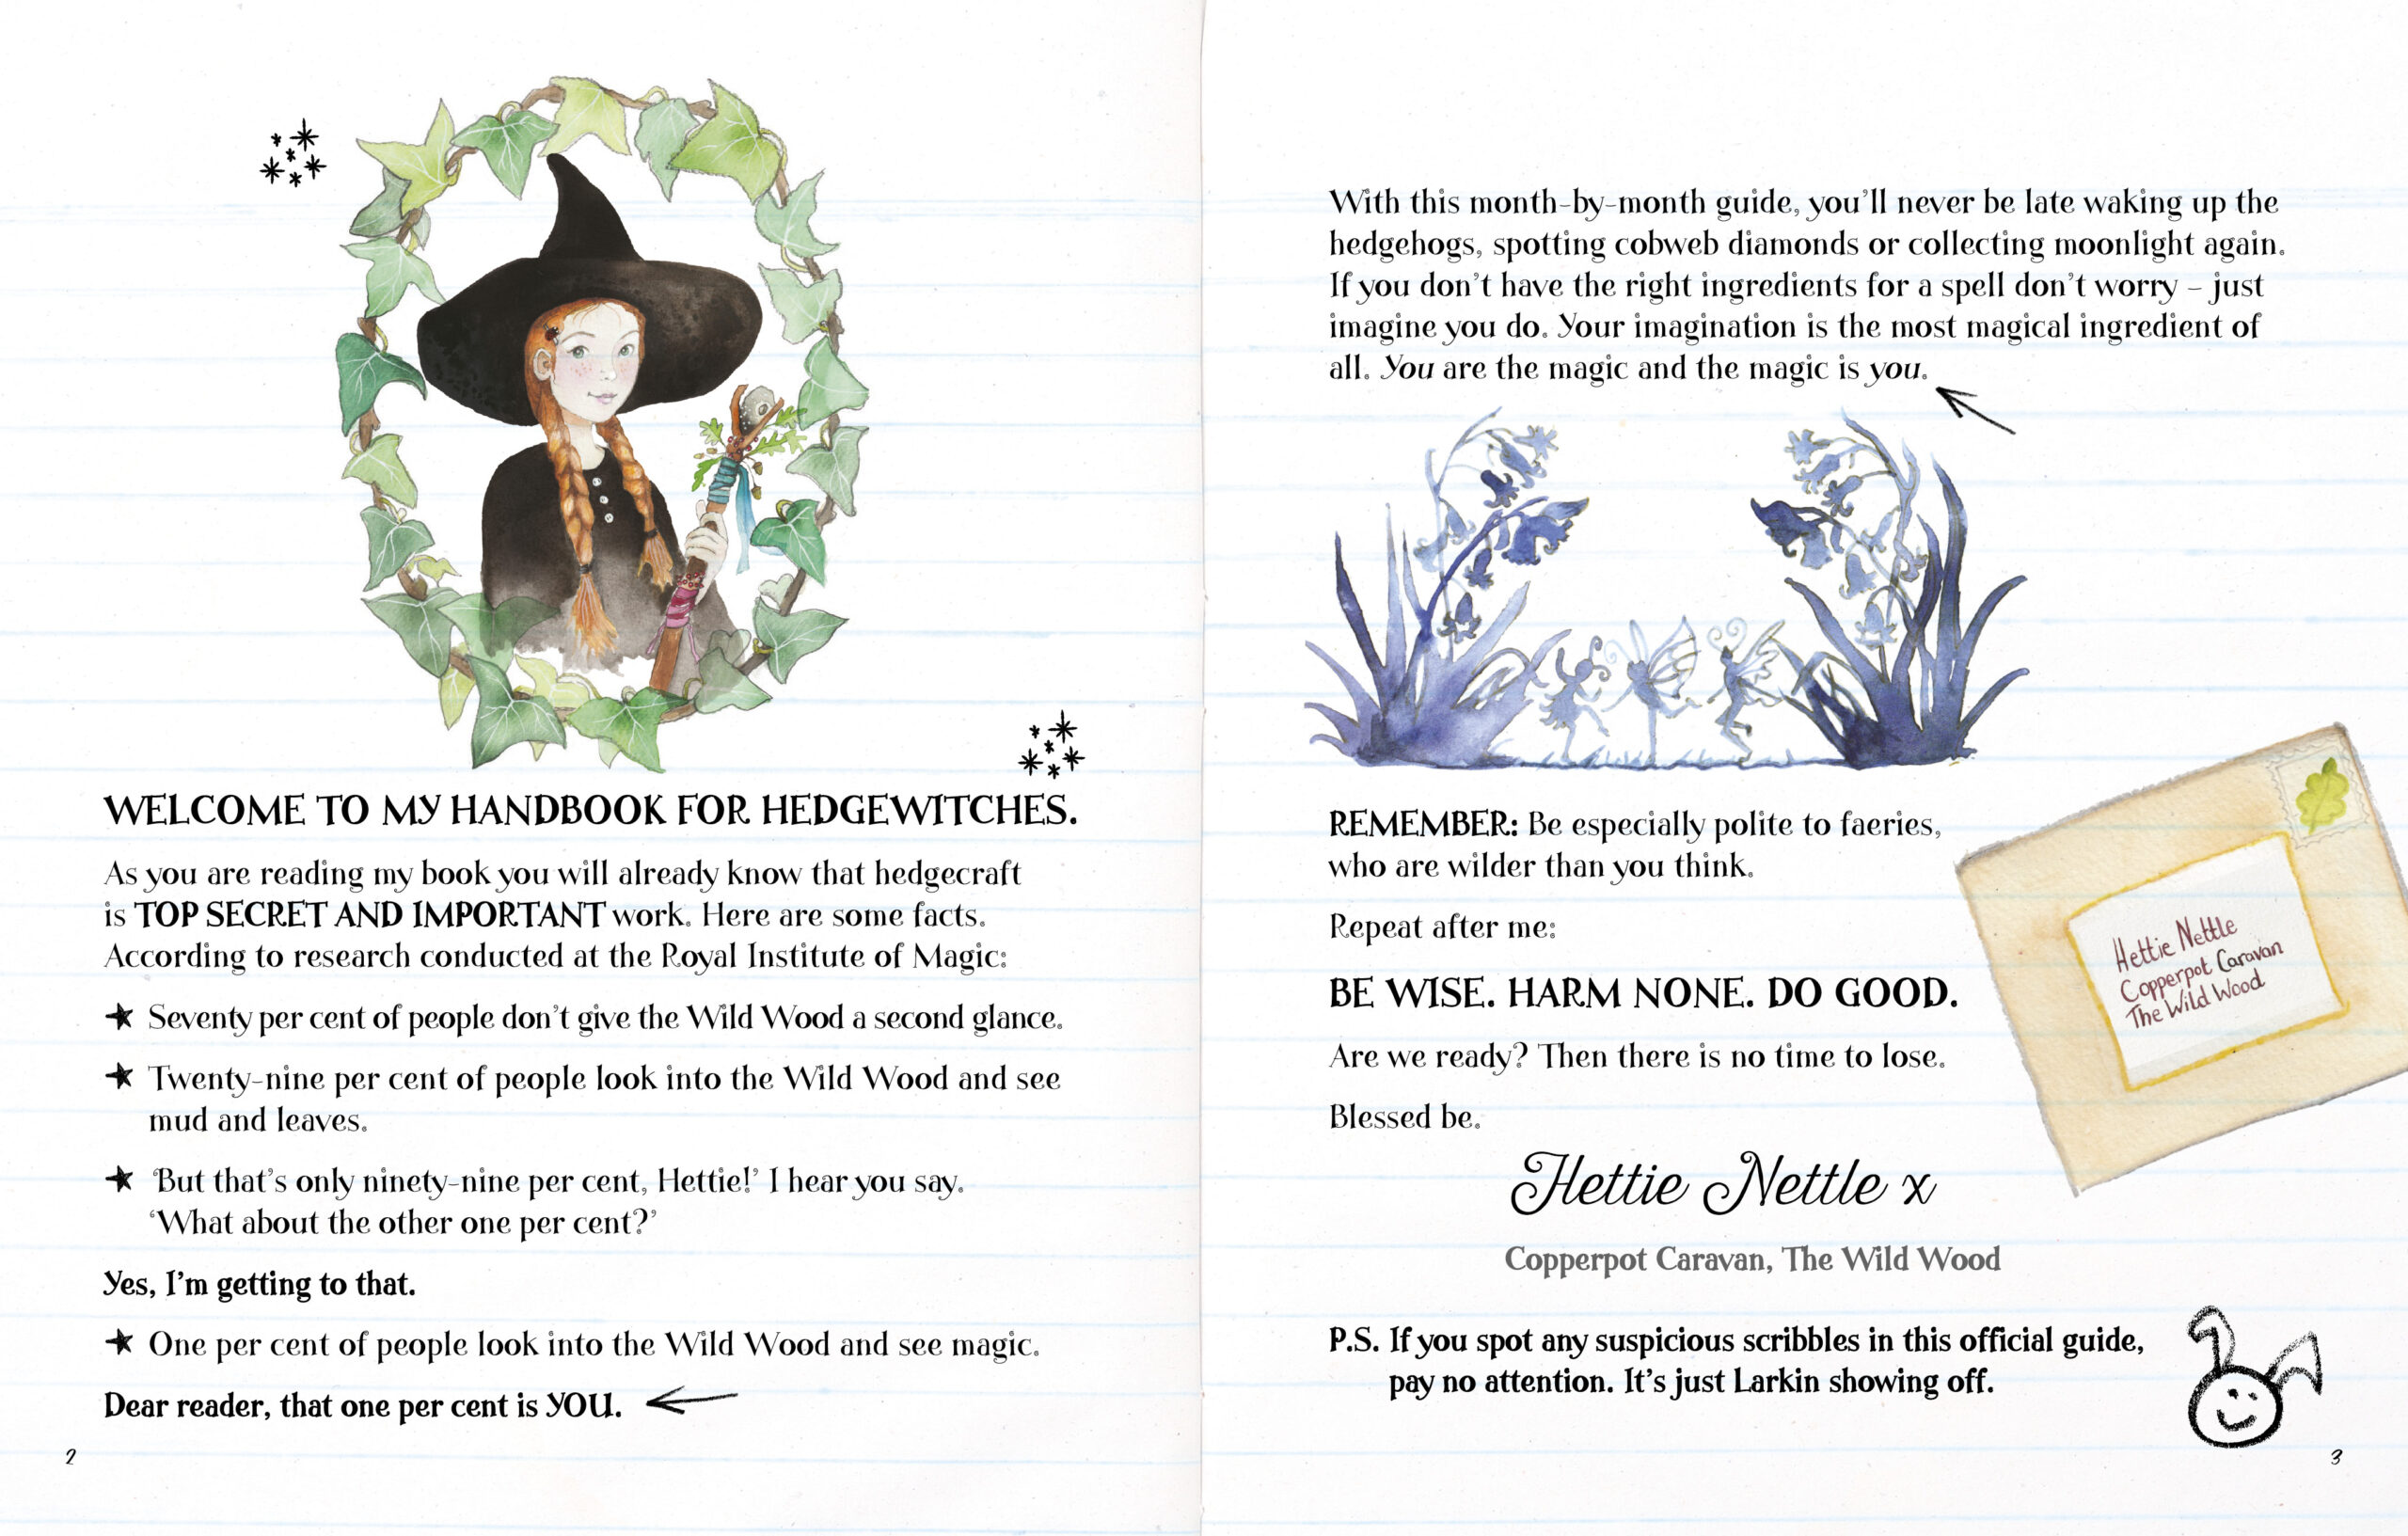 WELCOME TO MY HANDBOOK FOR HEDGEWITCHES.
As you are reading my book you will already know that hedgecraft
is TOP SECRET AND IMPORTANT work. Here are some facts.
According to research conducted at the Royal Institute of Magic:
Seventy per cent of people don't give the Wild Wood a second glance.
Twenty-nine per cent of people look into the Wild Wood and see
mud and leaves.
'But that's only ninety-nine per cent, Hettie!' I hear you say.
'What about the other one per cent?'
Yes, I'm getting to that.
One per cent of people look into the Wild Wood and see magic.
Dear reader, that one per cent is YOU.
2
With this month-by-month guide, you'll never be late waking up the
hedgehogs, spotting cobweb diamonds or collecting moonlight again.
If you don't have the right ingredients for a spell don't worry – just
imagine you do. Your imagination is the most magical ingredient of
all. You are the magic and the magic is you.
REMEMBER: Be especially polite to faeries,
who are wilder than you think.
Repeat after me:
BE WISE. HARM NONE. DO GOOD.
Are we ready? Then there is no time to lose.
Blessed be.
Hettie Nettle x
Copperpot Caravan, The Wild Wood
Hettie Nettle
Copperpot Caravan
The Wild Wood
P.S. If you spot any suspicious scribbles in this official guide,
pay no attention. It's just Larkin showing off.
3